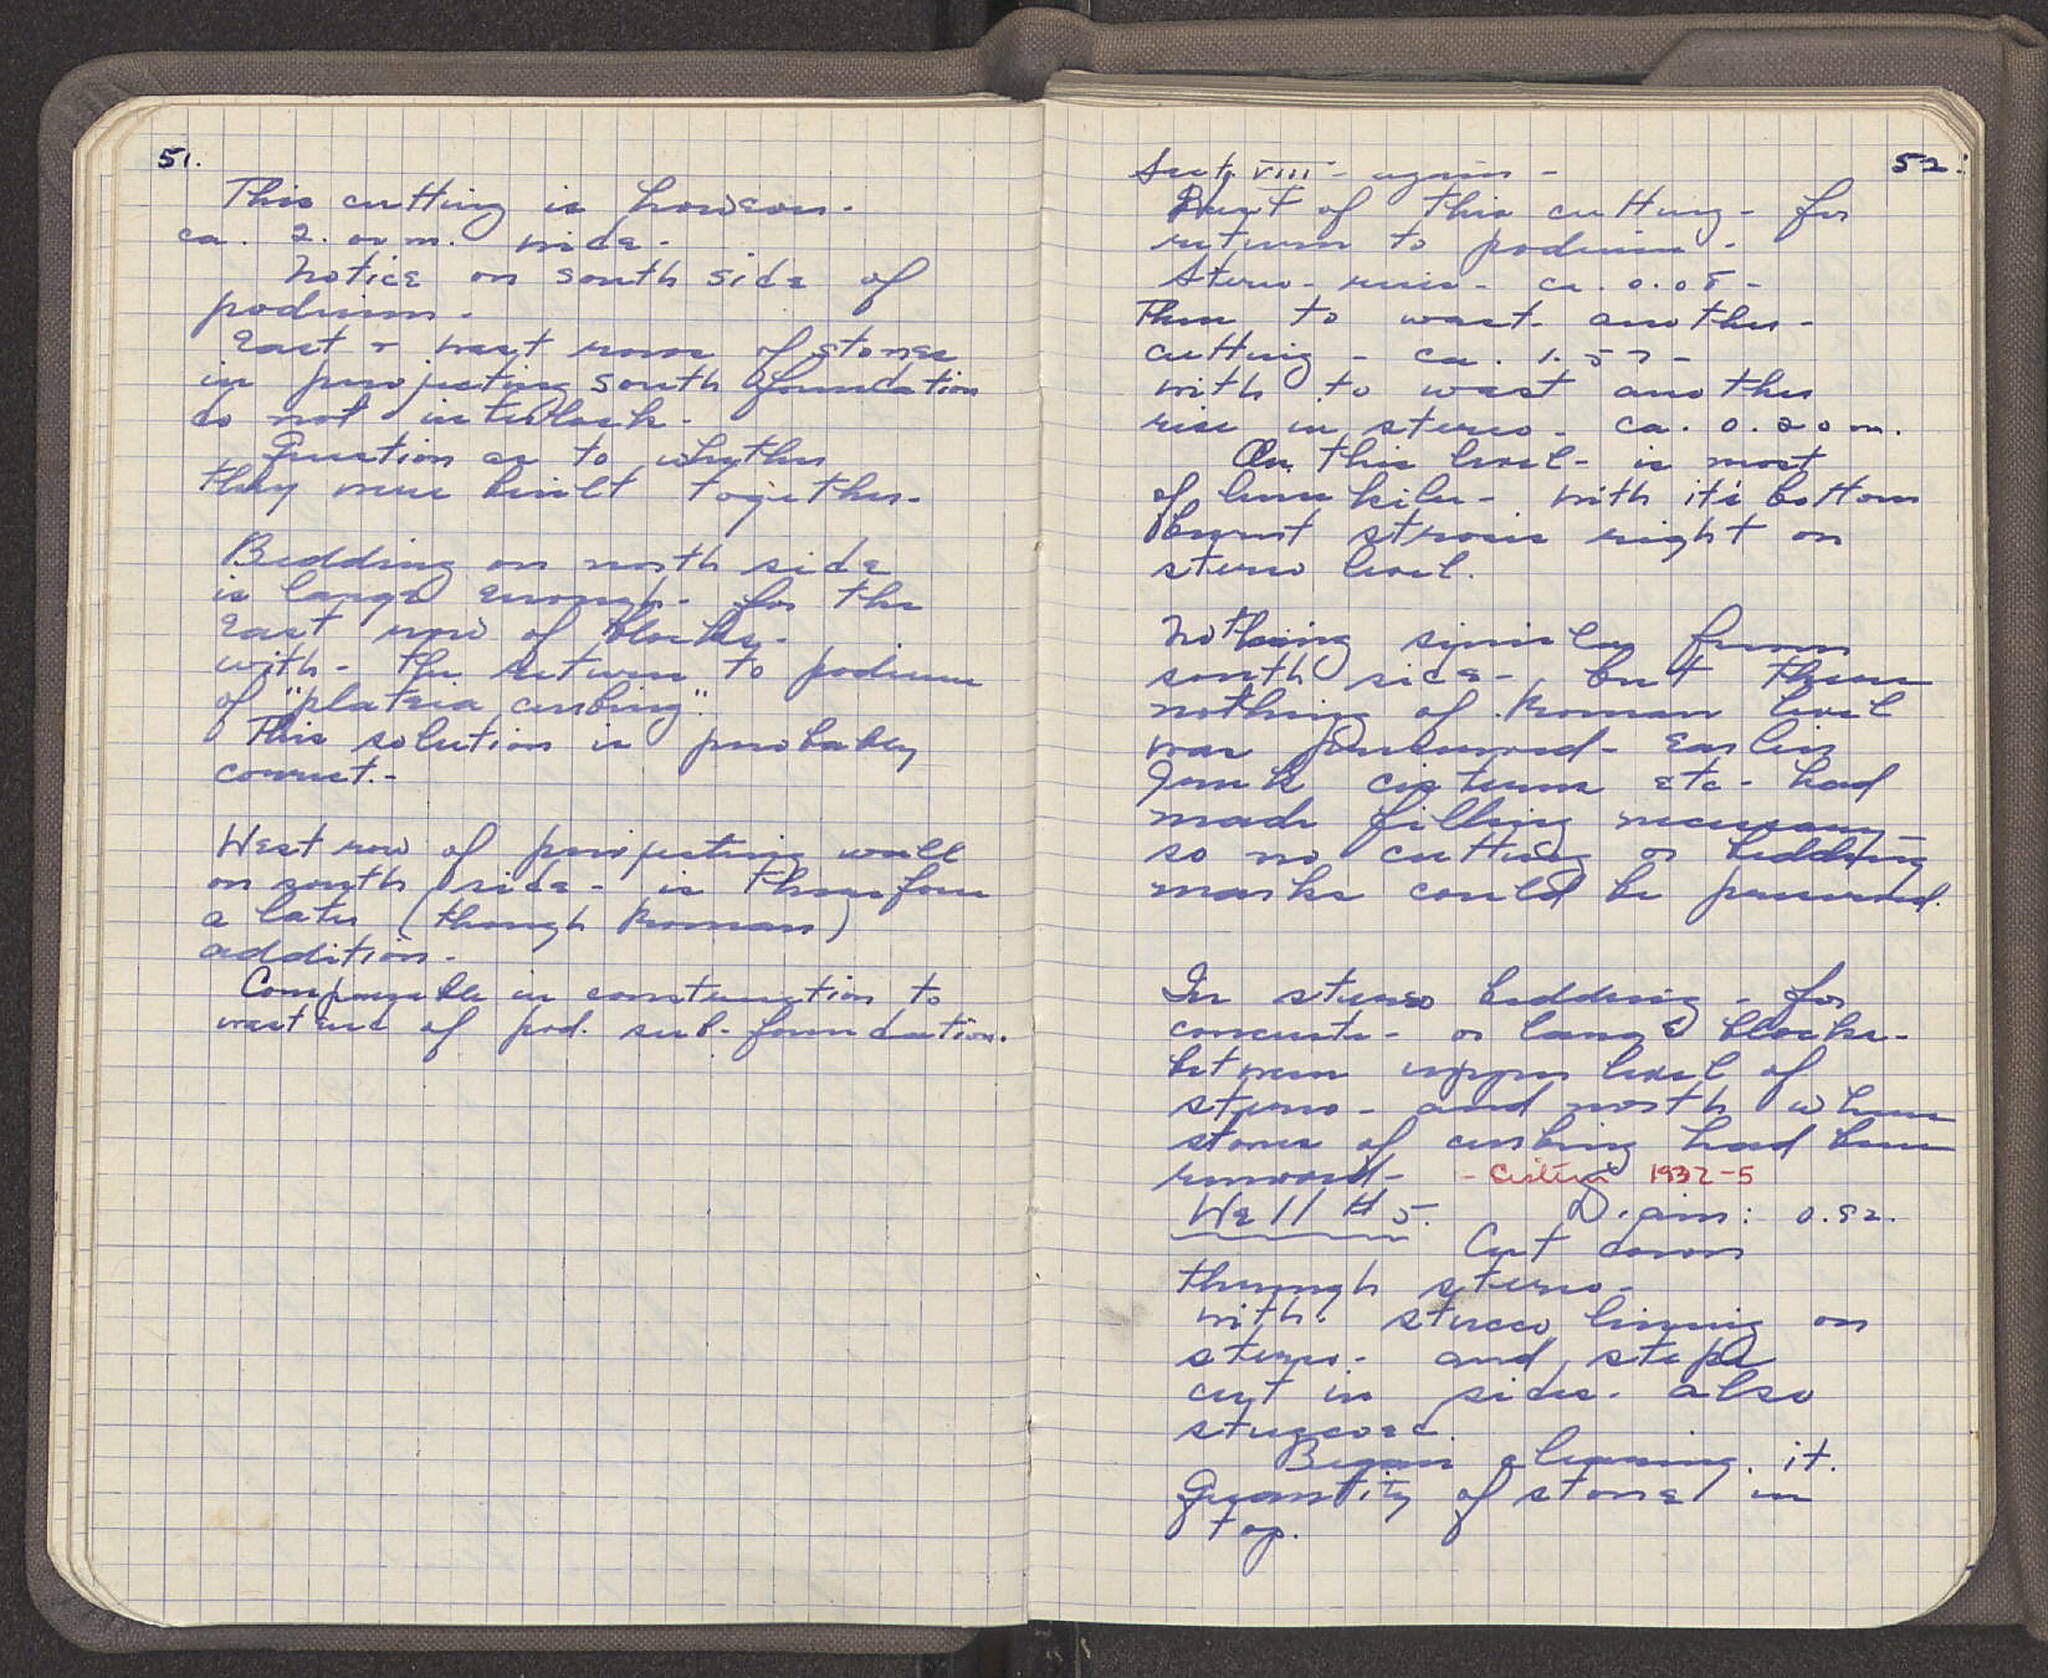 51.
This cutting is however.
ca. 2. m. wide.
Notice on south side of
podium.
East + west rows of stones
in projecting south foundation
do not interlock.
Question as to whether
they were built together.
Bedding on north side
is large enough. for the
East row of blocks.
with - the return to podium
of "plateia curbing".
This solution is probably
correct. -
West row of projecting wall
on south side - is therefore
a later (though Roman)
addition.
Comparable in construction to
west end of pod. sub-foundation.
52.
Sect. VIII - again -
of this cutting - for
return to podium -
Stereo - rises - ca. 0.08 -
Then to west - another -
cutting - ca. 1.57 -
with to west another
rise in stereo - ca. 0.20 m.
On this level - is most
of lime kiln - with it's bottom
burnt strosis right on
stereo level.
Nothing similar from
south side - but there
nothing of Roman level
was preserved - Earlier
Greek cisterns etc - had
made filling necessary -
so no cutting or bedding
marks could be preserved.
In stereo bedding - for
concrete - or large blocks -
between upper level of
stereo - and north where
stones of curbing had been
removed - - Cistern 1932-5
Well #5. Diam: 0.82.
Cut down
through stereo -
with stucco lining on
stereo - and steps
cut in sides. also
stuccoed.
Began cleaning it.
Quantity of stones in
top.